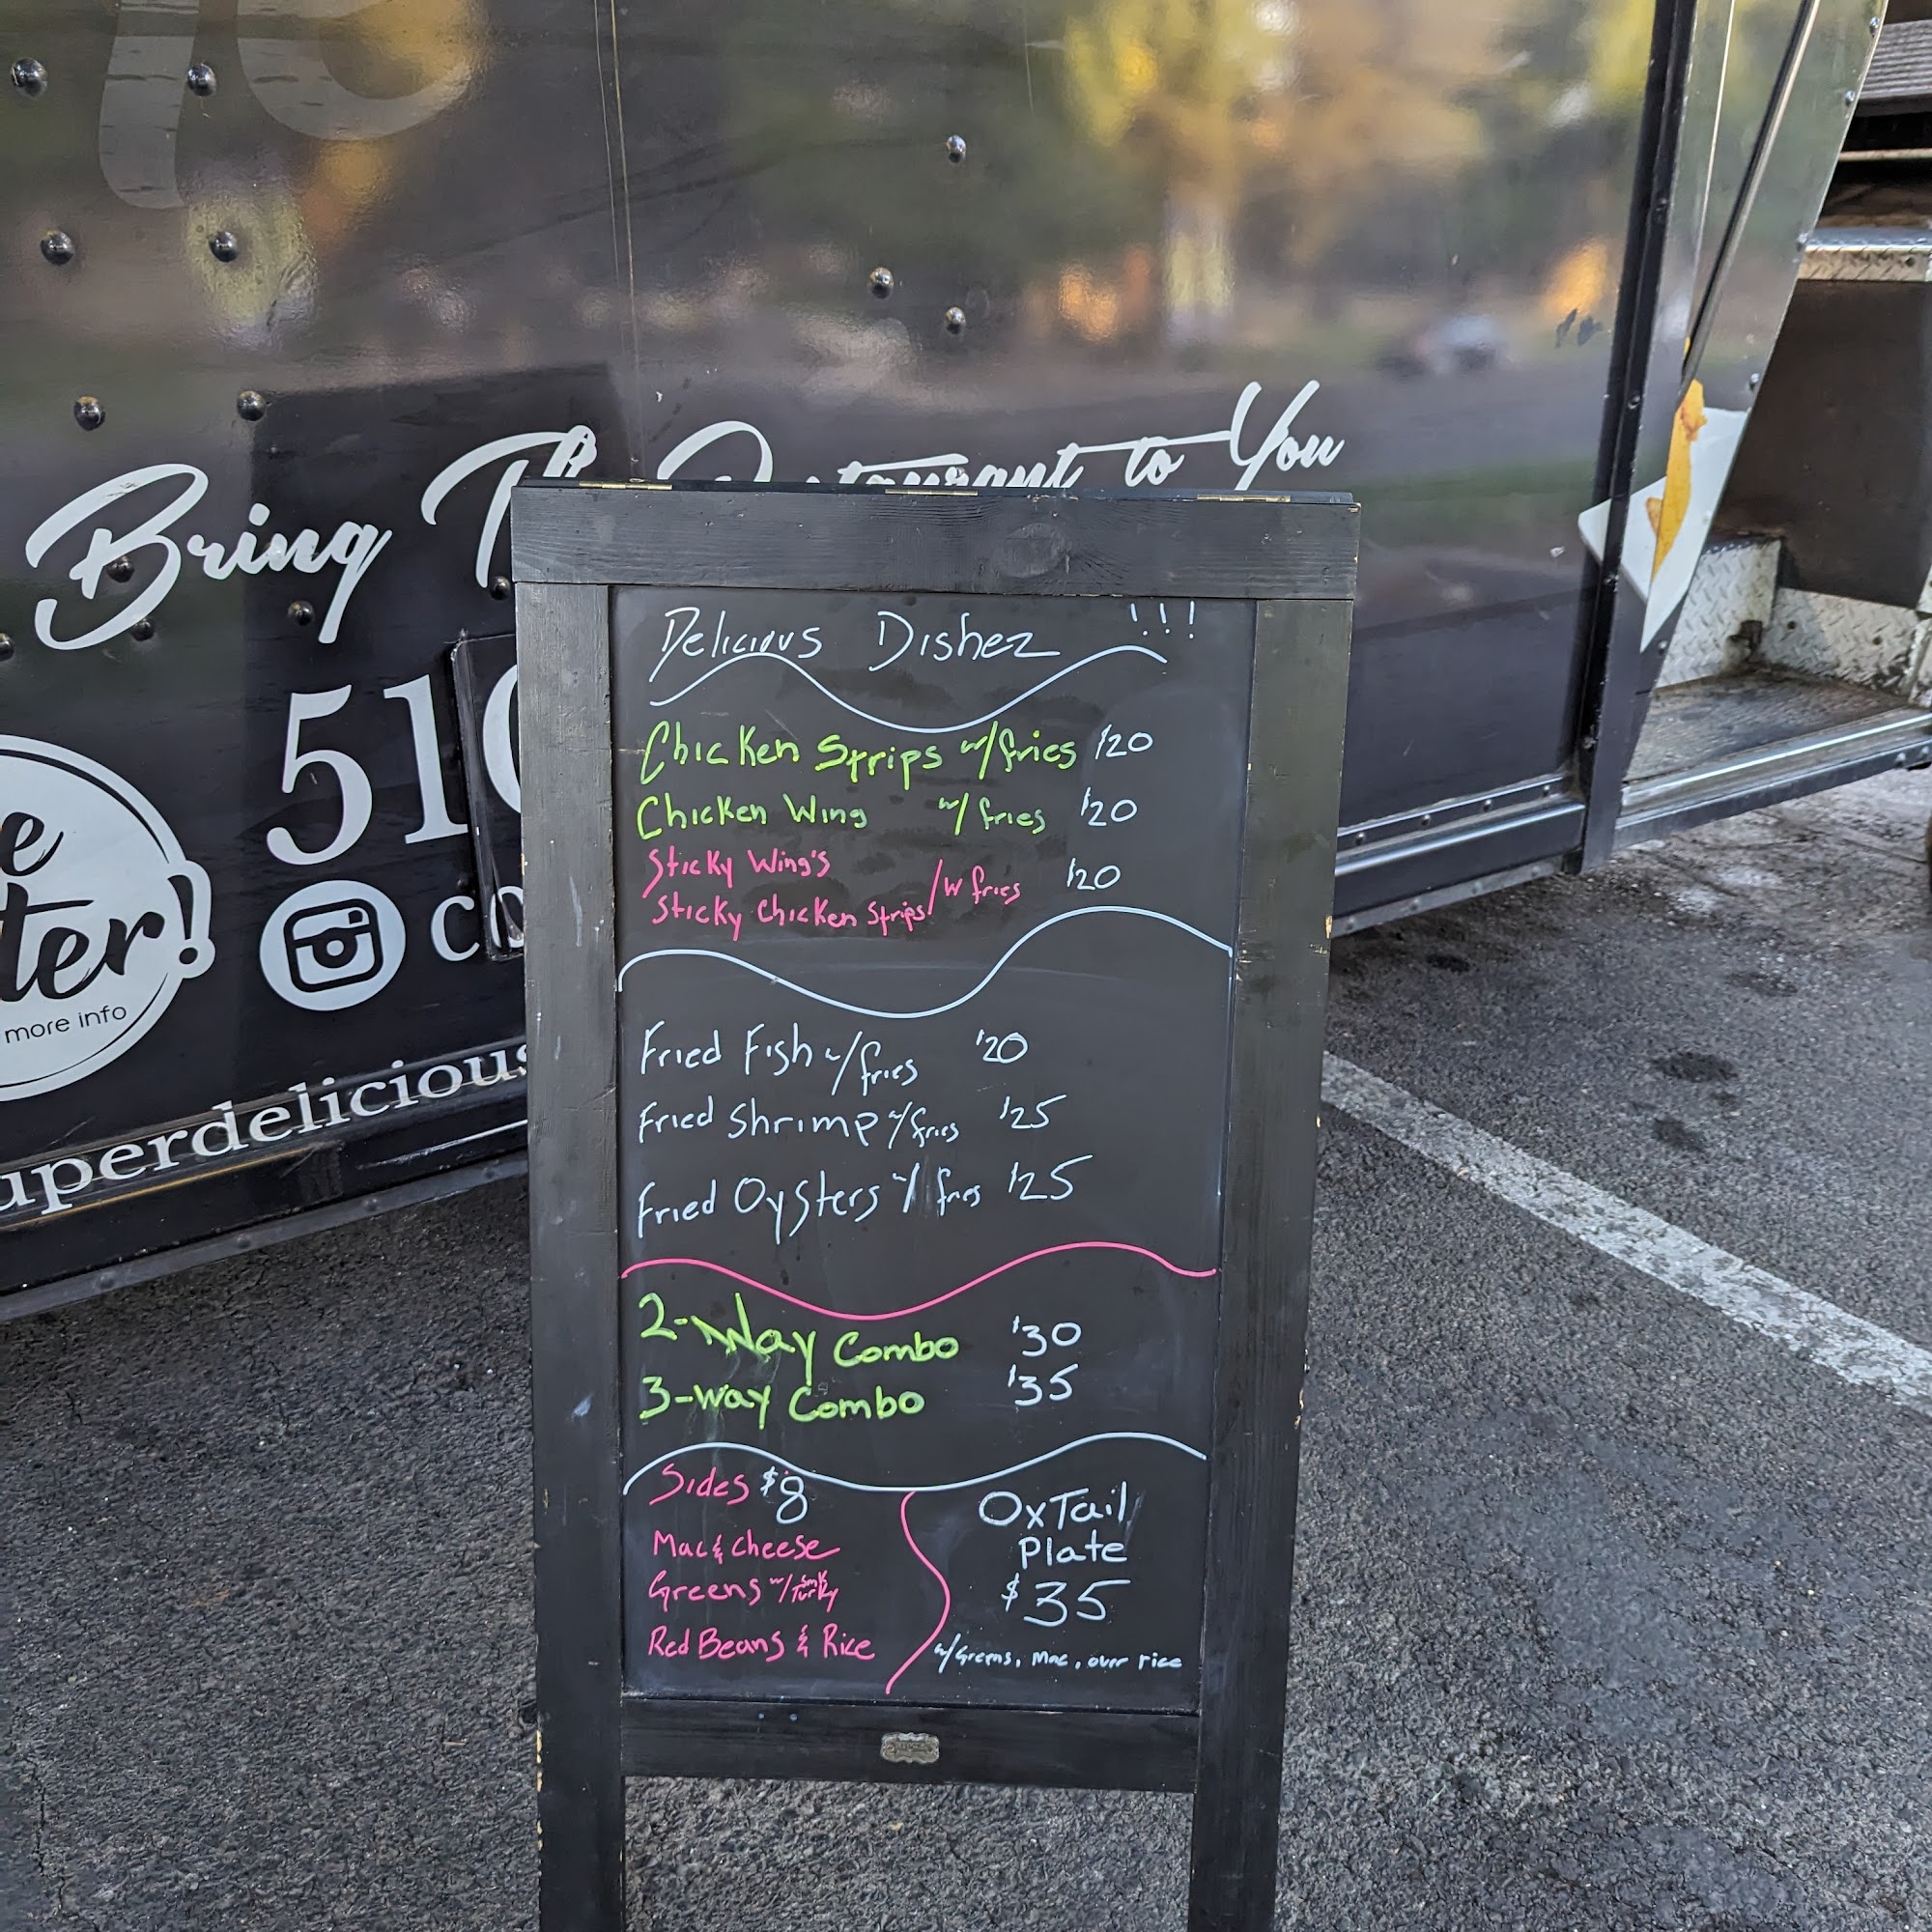 Bring The Restaurant to You
510
ter!
more info
uperdelicious
Delicious Dishez !!!
Chicken Strips w/fries $20
Chicken Wing w/ fries $20
Sticky Wing's
Sticky Chicken Strips /w fries $20
Fried Fish w/fries $20
Fried Shrimp w/fries $25
Fried Oysters w/ fries $25
2-Way Combo $30
3-way Combo $35
Sides $8
Mac & cheese
Greens w/ Smk Turky
Red Beans & Rice
OxTail
Plate
$35
w/Greens, Mac, over rice